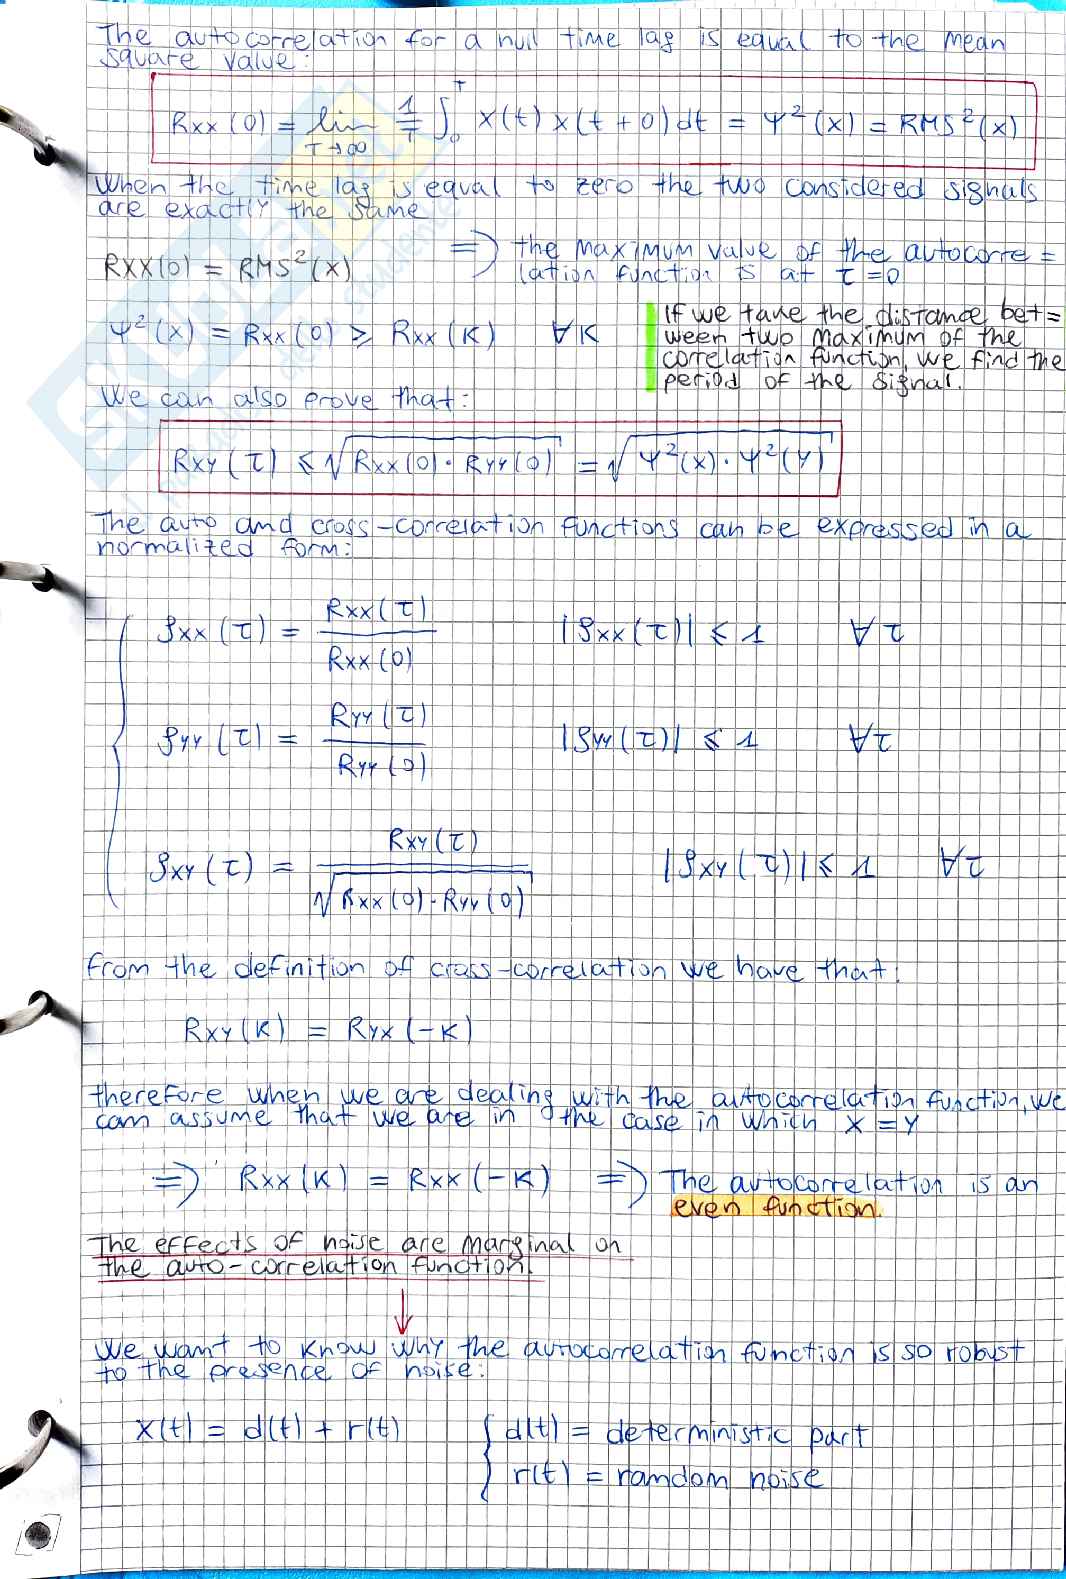 The autocorrelation for a null time lag is equal to the mean
square value:
Rxx(0) = lim T→∞ 1/T ∫₀ᵀ x(t) x(t+0) dt = Ψ²(x) = RMS²(x)
When the time lag is equal to zero the two considered signals
are exactly the same
Rxx(0) = RMS²(x) ⇒ the maximum value of the autocorre=
lation function is at τ=0
Ψ²(x) = Rxx(0) ⩾ Rxx(K) ∀K
If we take the distance bet=
ween two maximum of the
correlation function, we find the
period of the signal.
We can also prove that:
Rxy(τ) ⩽ √(Rxx(0)·Ryy(0)) = √(Ψ²(x)·Ψ²(y))
The auto and cross-correlation functions can be expressed in a
normalized form:
ρxx(τ) = Rxx(τ) / Rxx(0) |ρxx(τ)| ⩽ 1 ∀τ
ρyy(τ) = Ryy(τ) / Ryy(0) |ρyy(τ)| ⩽ 1 ∀τ
ρxy(τ) = Rxy(τ) / √(Rxx(0)·Ryy(0)) |ρxy(τ)| ⩽ 1 ∀τ
from the definition of cross-correlation we have that:
Rxy(K) = Ryx(-K)
therefore when we are dealing with the autocorrelation function, we
can assume that we are in the case in which x=y
⇒ Rxx(K) = Rxx(-K) ⇒ The autocorrelation is an
even function.
The effects of noise are marginal on
the auto-correlation function.
↓
We want to know why the autocorrelation function is so robust
to the presence of noise:
x(t) = d(t) + r(t) { d(t) = deterministic part
r(t) = random noise